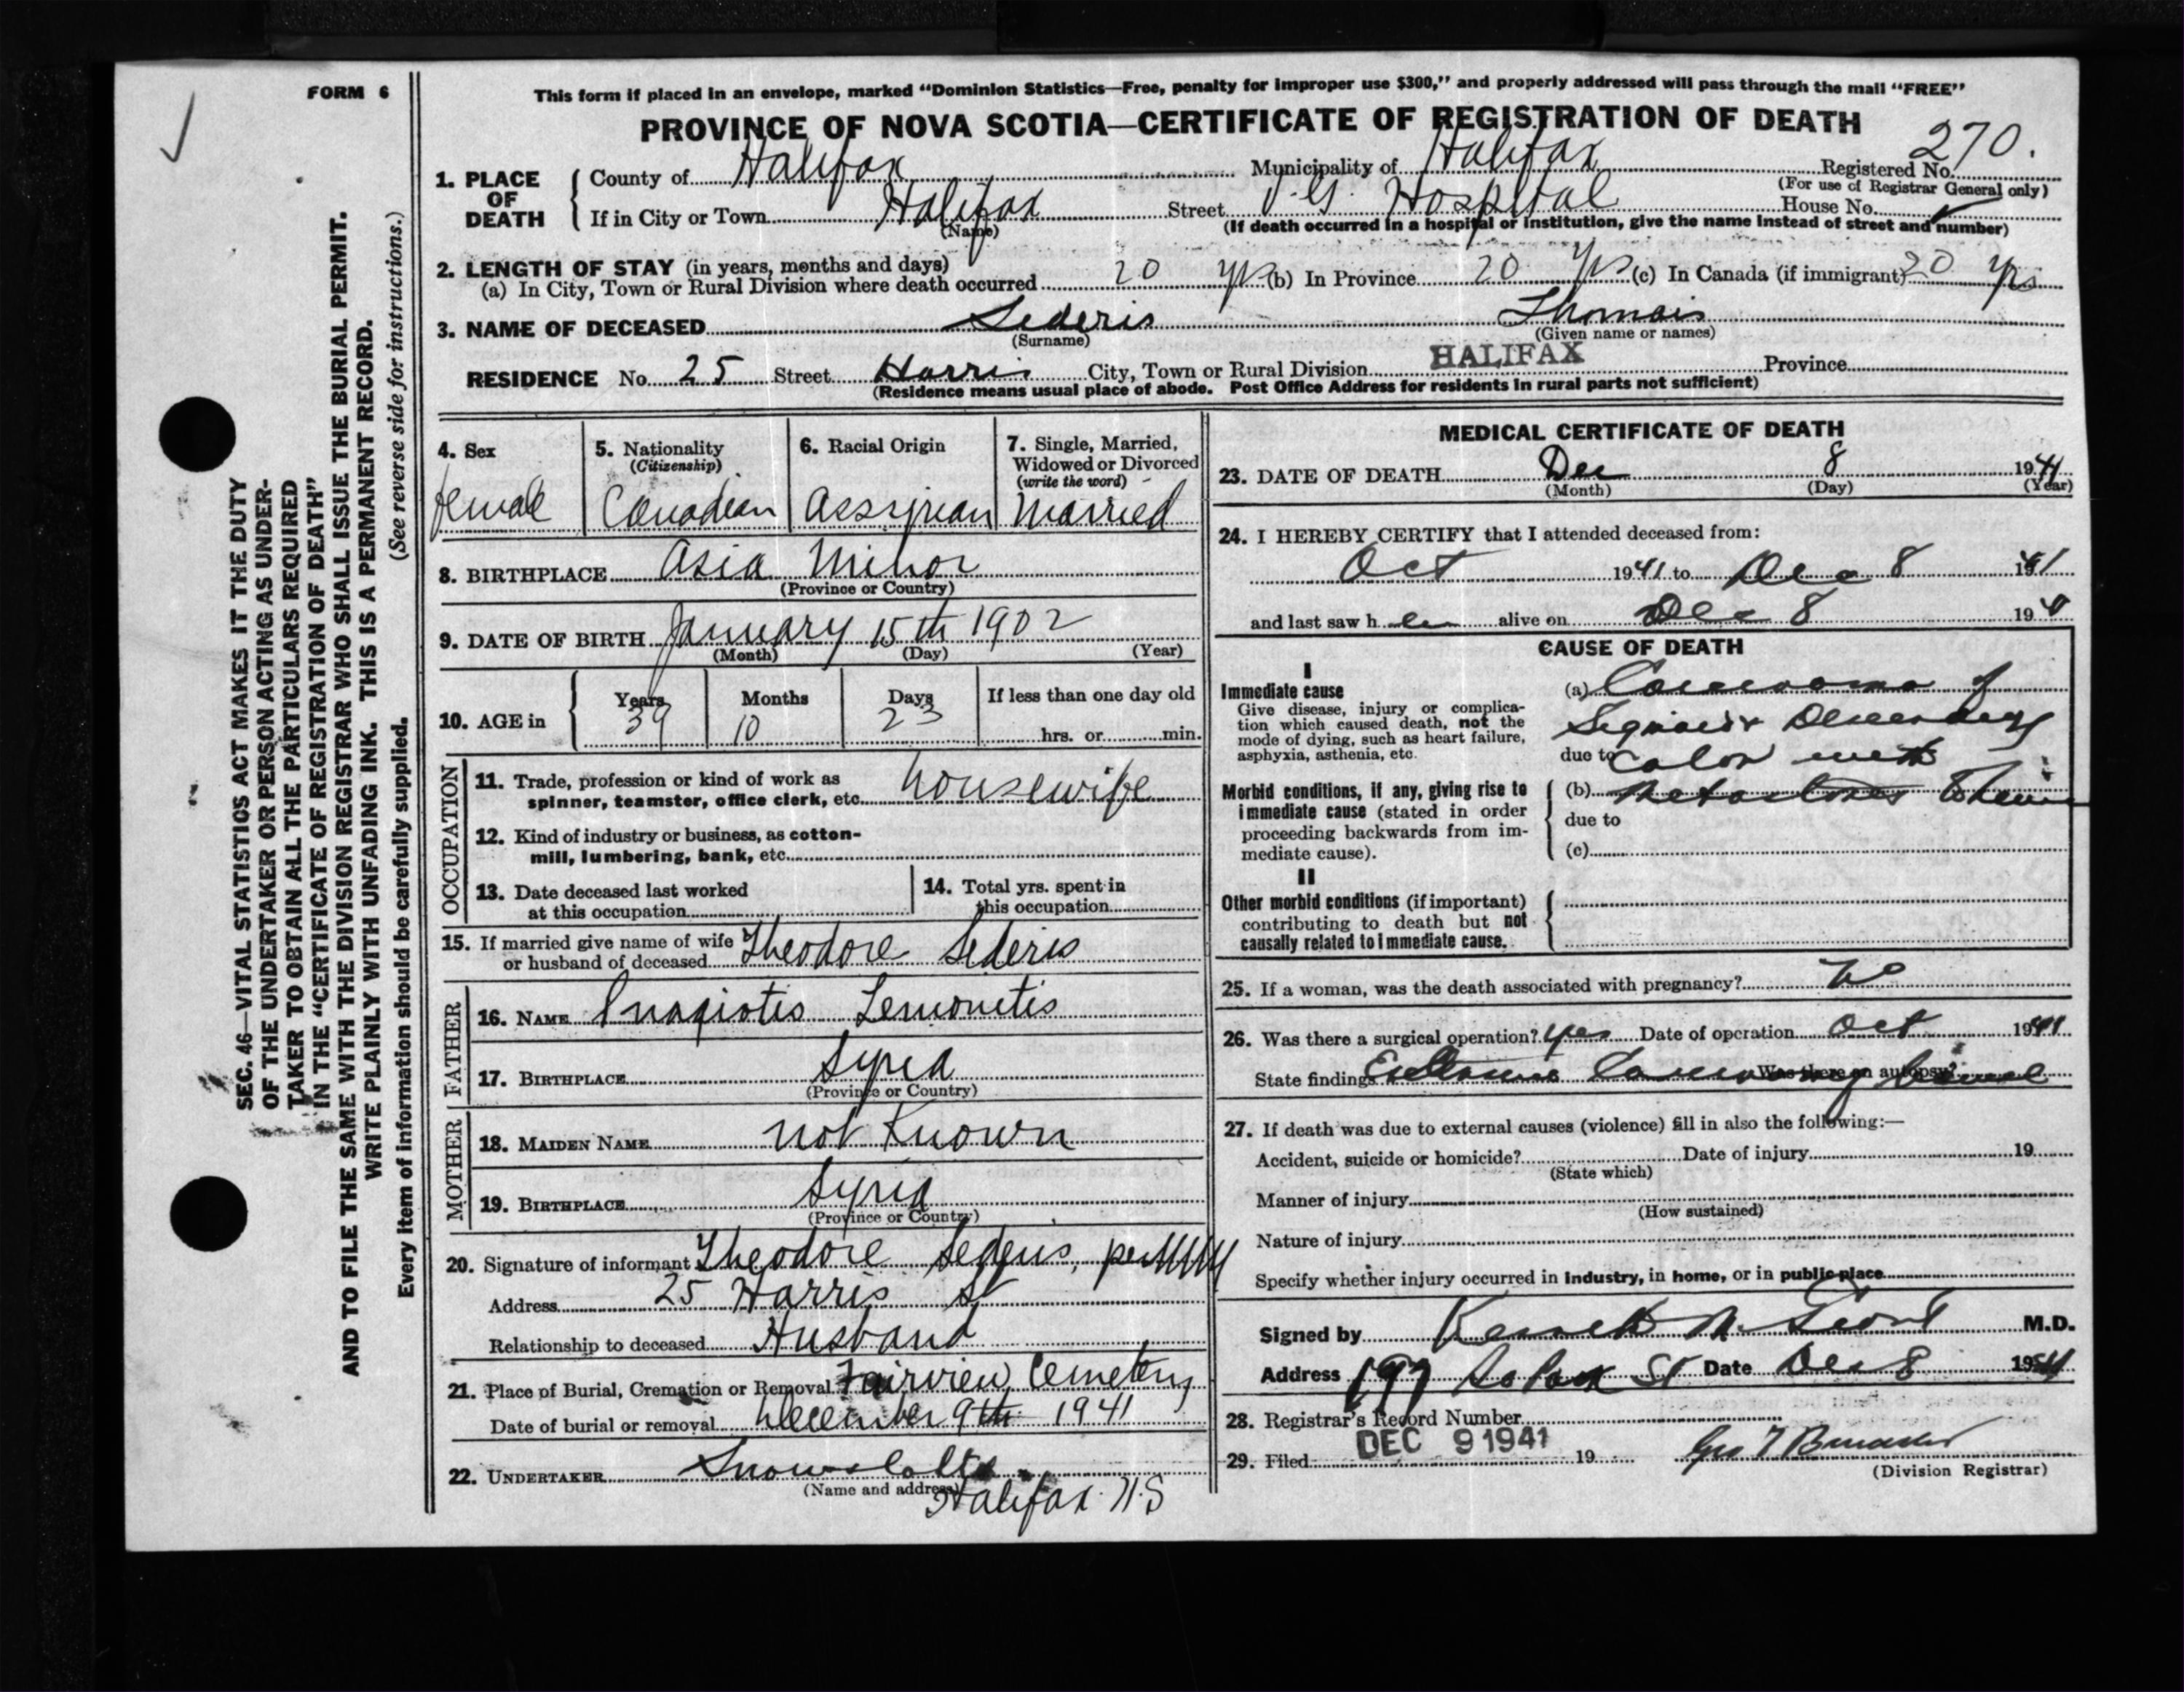 FORM 6
This form if placed in an envelope, marked "Dominion Statistics—Free, penalty for improper use $300," and properly addressed will pass through the mail "FREE"
PROVINCE OF NOVA SCOTIA—CERTIFICATE OF REGISTRATION OF DEATH
SEC. 46—VITAL STATISTICS ACT MAKES IT THE DUTY
OF THE UNDERTAKER OR PERSON ACTING AS UNDER-
TAKER TO OBTAIN ALL THE PARTICULARS REQUIRED
IN THE "CERTIFICATE OF REGISTRATION OF DEATH"
AND TO FILE THE SAME WITH THE DIVISION REGISTRAR WHO SHALL ISSUE THE BURIAL PERMIT.
WRITE PLAINLY WITH UNFADING INK. THIS IS A PERMANENT RECORD.
Every item of information should be carefully supplied. (See reverse side for instructions.)
1. PLACE OF DEATH
County of Halifax Municipality of Halifax Registered No. 270.
(For use of Registrar General only)
If in City or Town Halifax Street V.G. Hospital House No.
(Name) (If death occurred in a hospital or institution, give the name instead of street and number)
2. LENGTH OF STAY (in years, months and days)
(a) In City, Town or Rural Division where death occurred 20 yrs (b) In Province 20 yrs (c) In Canada (if immigrant) 20 yrs
3. NAME OF DECEASED Sederis Thomais
(Surname) (Given name or names)
RESIDENCE No. 25 Street Harris City, Town or Rural Division HALIFAX Province
(Residence means usual place of abode. Post Office Address for residents in rural parts not sufficient)
4. Sex
female
5. Nationality
(Citizenship)
Canadian
6. Racial Origin
Assyrian
7. Single, Married,
Widowed or Divorced
(write the word)
Married
8. BIRTHPLACE Asia Minor
(Province or Country)
9. DATE OF BIRTH January 15th 1902
(Month) (Day) (Year)
10. AGE in
Years Months Days If less than one day old
39 10 23 hrs. or min.
OCCUPATION
11. Trade, profession or kind of work as
spinner, teamster, office clerk, etc. housewife
12. Kind of industry or business, as cotton-
mill, lumbering, bank, etc.
13. Date deceased last worked
at this occupation
14. Total yrs. spent in
this occupation
15. If married give name of wife
or husband of deceased Theodore Sederis
FATHER
16. NAME Lemonitis
17. BIRTHPLACE Syria
(Province or Country)
MOTHER
18. MAIDEN NAME not Known
19. BIRTHPLACE Syria
(Province or Country)
20. Signature of informant Theodore Sederis, per
Address 25 Harris St
Relationship to deceased Husband
21. Place of Burial, Cremation or Removal Fairview Cemetery
Date of burial or removal December 9th 1941
22. UNDERTAKER Snows
(Name and address) Halifax N.S
MEDICAL CERTIFICATE OF DEATH
23. DATE OF DEATH Dec 8 1941
(Month) (Day) (Year)
24. I HEREBY CERTIFY that I attended deceased from:
Oct 1941 to Dec 8 1941
and last saw h er alive on Dec 8 194
CAUSE OF DEATH
I
Immediate cause
Give disease, injury or complica-
tion which caused death, not the
mode of dying, such as heart failure,
asphyxia, asthenia, etc.
(a) Carcinoma of
Sigmoid & Descending
due to Colon with
Morbid conditions, if any, giving rise to
immediate cause (stated in order
proceeding backwards from im-
mediate cause).
(b) Metastases
due to
(c)
II
Other morbid conditions (if important)
contributing to death but not
causally related to immediate cause.
25. If a woman, was the death associated with pregnancy? No
26. Was there a surgical operation? yes Date of operation Oct 1941
State findings Extensive Carcinoma of bowel Was there an autopsy?
27. If death was due to external causes (violence) fill in also the following:—
Accident, suicide or homicide? Date of injury 19
(State which)
Manner of injury
(How sustained)
Nature of injury
Specify whether injury occurred in industry, in home, or in public place
Signed by Kenneth M. Grant M.D.
Address 197 So Park St Date Dec 8 1941
28. Registrar's Record Number
29. Filed DEC 9 1941 19
(Division Registrar)